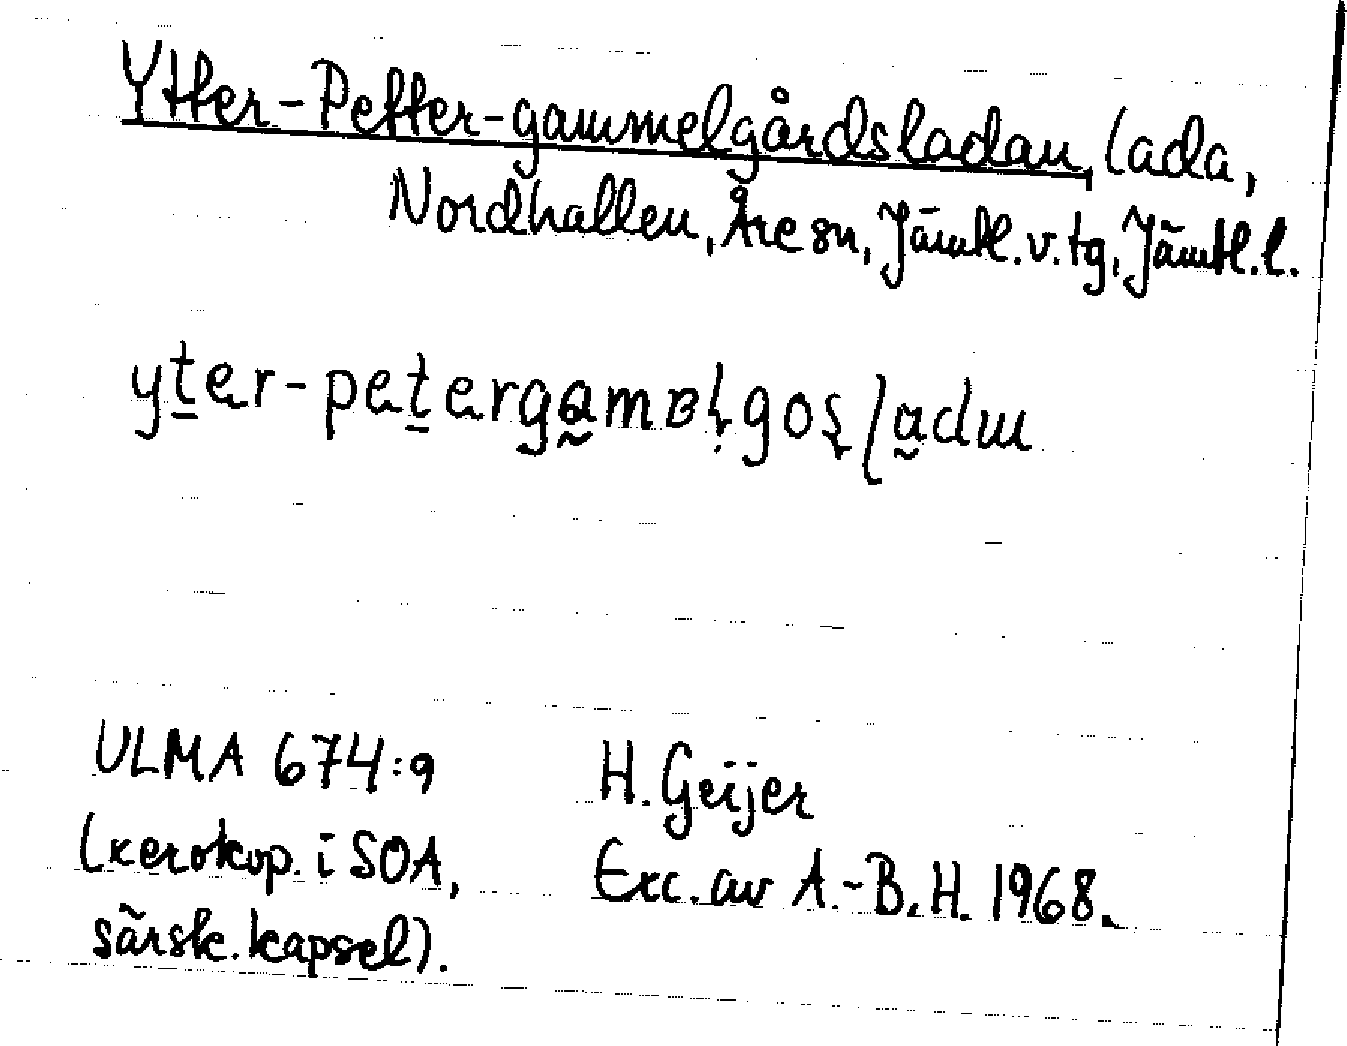 Ytter-Petter-gammelgårdsladan, lada,
Nordhallen, Åre sn, Jämtl. v. tg, Jämtl. l.
ULMA 674:9
H. Geijer
(xerokop. i SOA,
Exc. av A.-B. H. 1968.
särsk. kapsel).